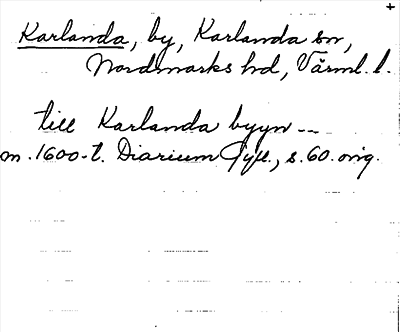 +
Karlanda, by, Karlanda sn,
Nordmarks hd, Värml. l.
till Karlanda byyn --
m. 1600-t. Diarium Gyll., s. 60. orig.